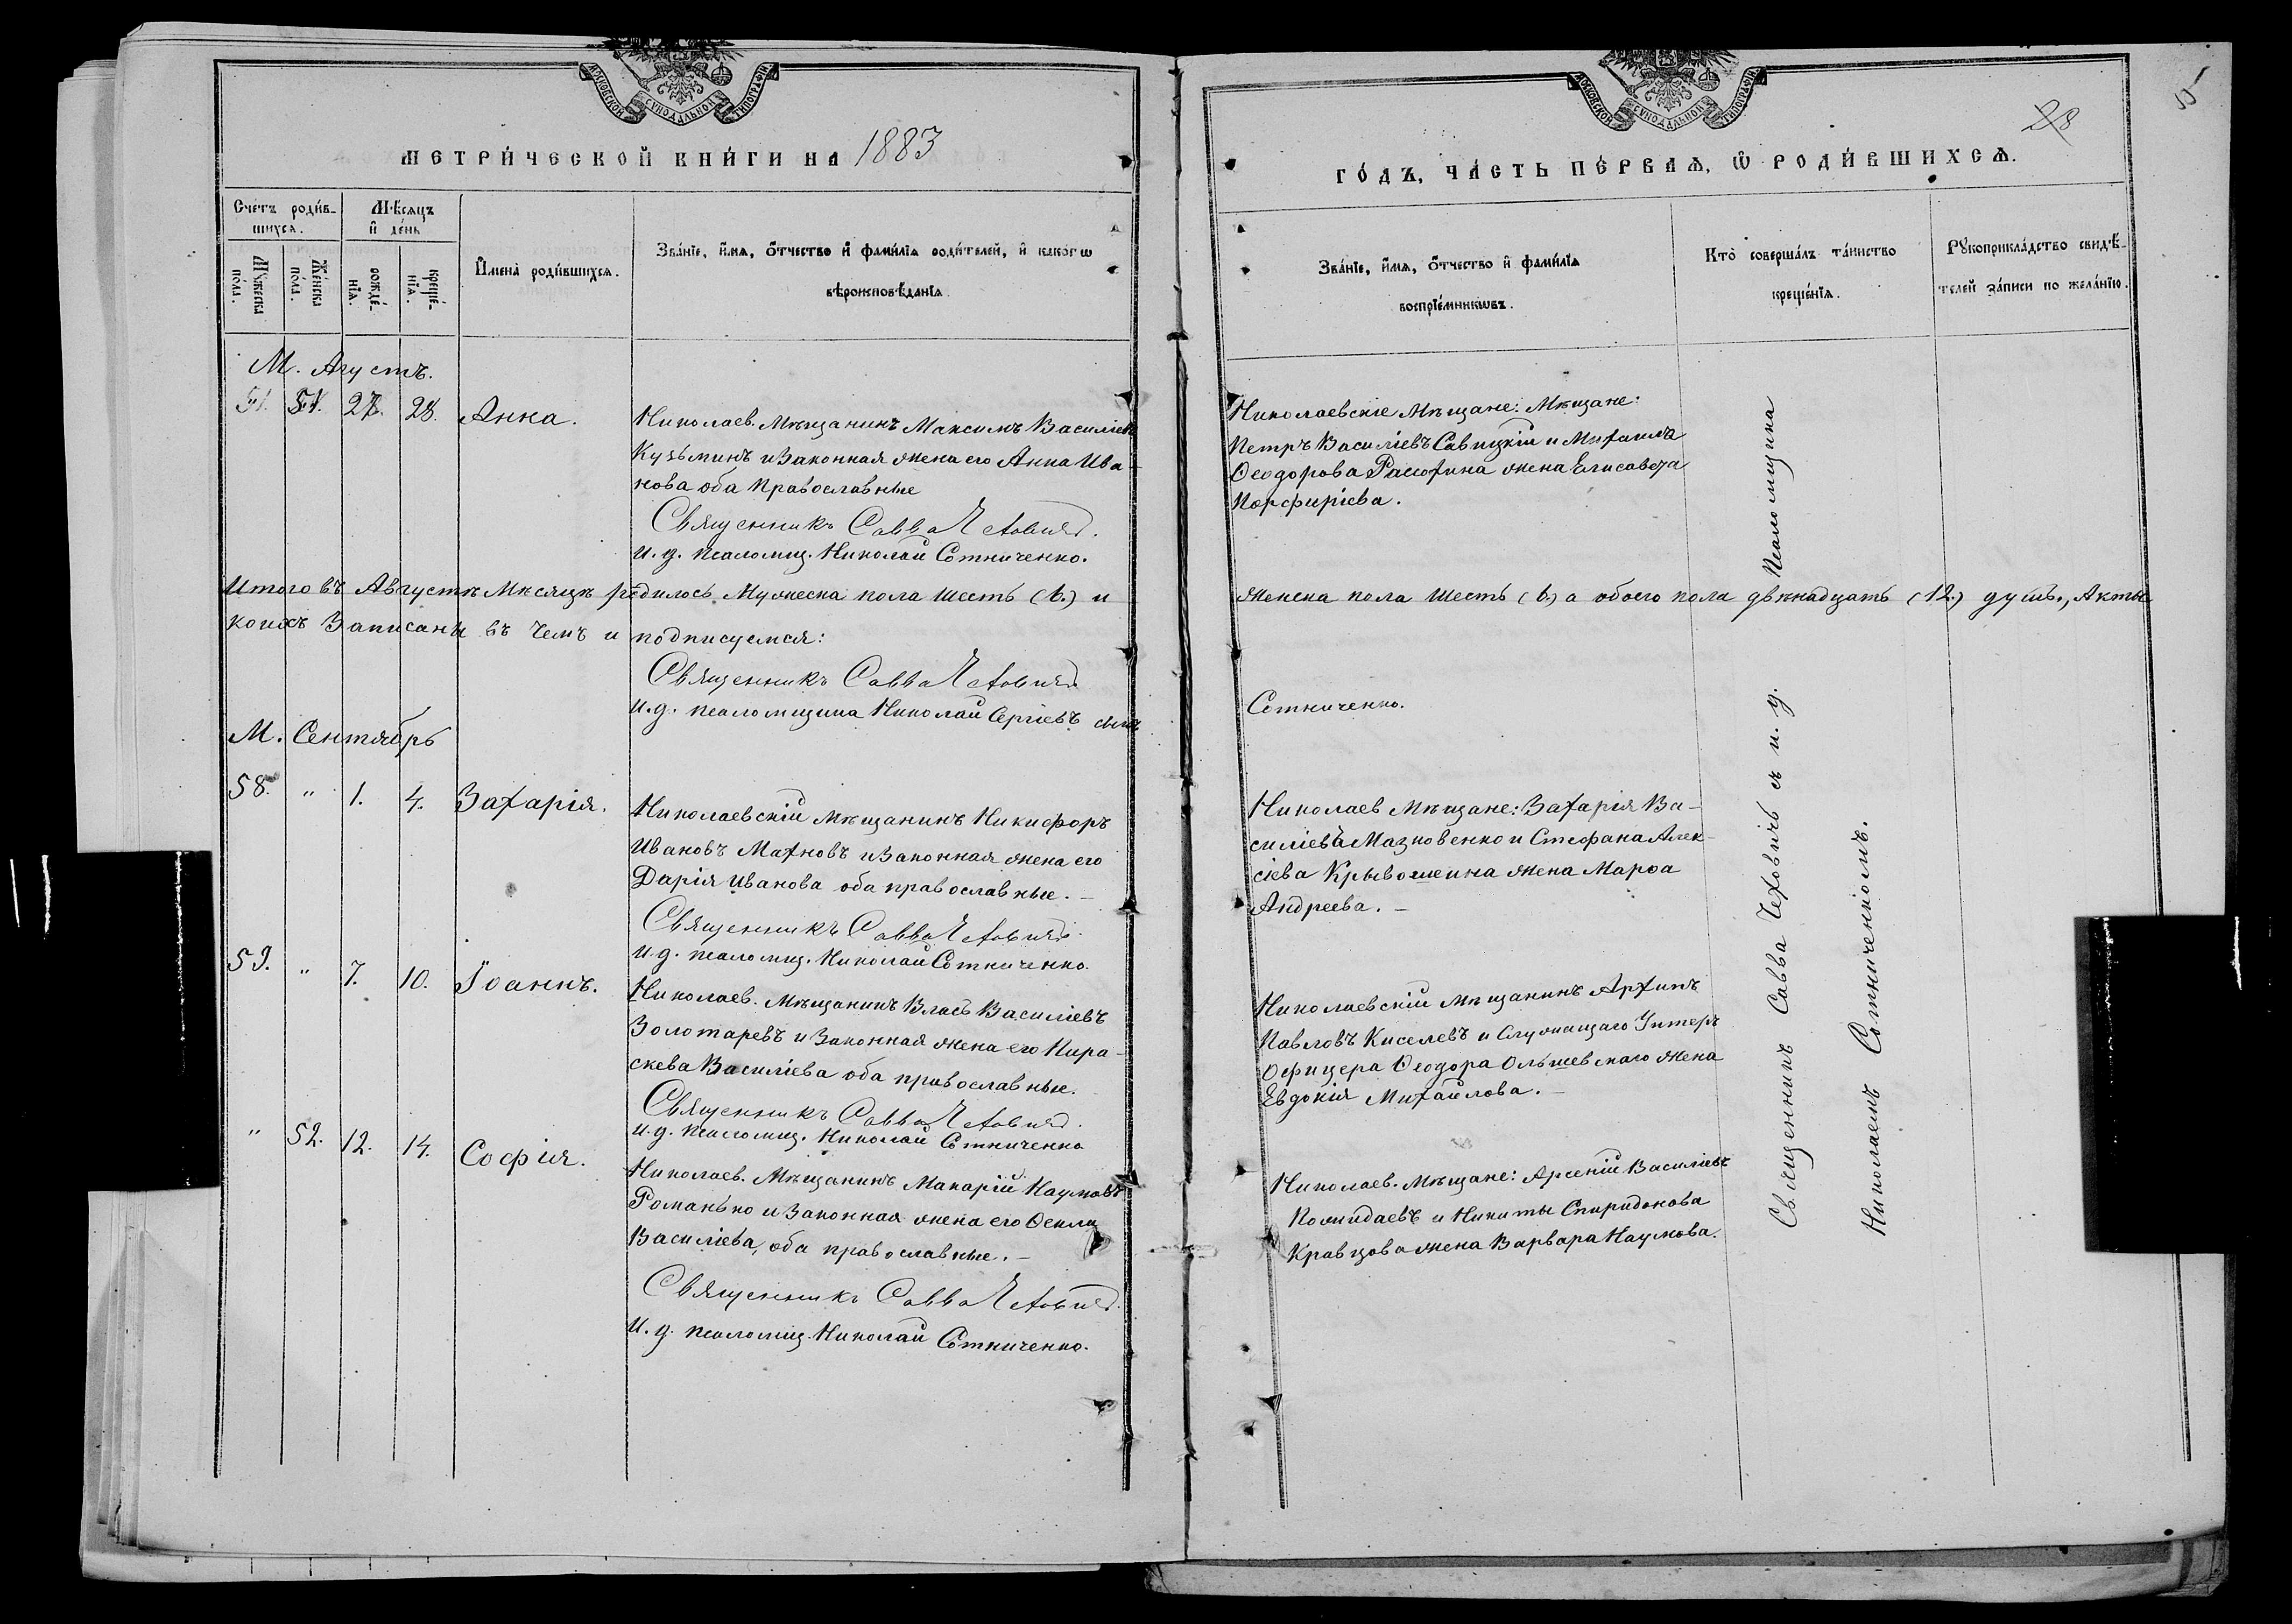 МОСКОВСКОЙ СѴНОДАЛЬНОЙ ТИПОГРАФІИ
МЕТРИ́ЧЕСКОЙ КНИ́ГИ НА 1883
Сче́тъ роди́в-
шихся.
Мѣ́сяцъ
и҆ де́нь
Мꙋ́жеска
по́ла.
Же́нска
по́ла.
рожде́-
нїѧ.
креще́-
нїѧ.
И҆мена̀ роди́вшихся.
Зва́нїе, и҆́мѧ, ѻ҆́тчество и҆ фами́лїѧ роди́телей, и҆ како́гѡ
вѣроисповѣ́данїѧ.
М. Агустъ.
51. 27. 28. Анна.
Николаев. Мѣщанинъ Максимъ Василіевъ
Кузьминъ и Законная жена его Анна Ива-
нова оба Православные
Священникъ Савва Чеховичъ.
И. д. псаломщ. Николай Сотниченко.
Итого въ Августѣ Мѣсяцѣ родилось Мужеска пола шесть (6.) и
коихъ Записаны въ чемъ и подписуемся:
Священникъ Савва Чеховичъ
И. д. псаломщика Николай Сергіевъ сынъ
М. Сентябрь
58. " 1. 4. Захарія.
Николаевскій мѣщанинъ Никифоръ
Ивановъ Махновъ и Законная жена его
Дарія Иванова оба православные. –
Священникъ Савва Чеховичъ.
И. д. псаломщ. Николай Сотниченко.
59. " 7. 10. Іоаннъ.
Николаев. Мѣщанинъ Власъ Василіевъ
Золотаревъ и Законная жена его Пара-
скева Василіева оба православные.
Священникъ Савва Чеховичъ.
И. д. псаломщ. Николай Сотниченко
" 52. 12. 14. Софія.
Николаев. Мѣщанинъ Макарій Наумовъ
Романько и Законная жена его Ѳекла
Василіева, оба православные. –
Священникъ Савва Чеховичъ.
И. д. псаломщ. Николай Сотниченко.
МОСКОВСКОЙ СѴНОДАЛЬНОЙ ТИПОГРАФІИ
28
ГО́ДЪ, ЧА́СТЬ ПЕ́РВАѦ, Ѡ҆ РОДИ́ВШИХСѦ.
Зва́нїе, и҆́мѧ, ѻ҆́тчество и҆ фами́лїѧ
воспрїе́мникѡвъ.
Кто̀ соверша́лъ та́инство
креще́нїѧ.
Рꙋкоприкла́дство свидѣ́-
телей за́писи по жела́нїю.
Николаевскіе Мѣщане: Мѣщане:
Петръ Василіевъ Савицкій и Михаила
Ѳеодорова жена Елисавета
Порфиріева.
женска пола шесть (6.) а обоего пола двѣнадцать (12.) душъ, Акты
Сотниченко.
Николаев Мѣщане: Захарія Ва-
силіевъ Мазновенко и Стефана Алек-
сіева Крывошеина жена Марѳа
Андреева. –
Николаевскій мѣщанинъ Архипъ
Павловъ Киселевъ и Служащаго Унтеръ
Офицера Ѳеодора Ольшевскаго жена
Евдокія Михайлова. –
Николаев. Мѣщане: Арсеній Василіевъ
Пожидаевъ и Никиты Спиридонова
Кравцова жена Варвара Наумова.
Священникъ Савва Чеховичъ съ и. д. Псаломщика
Николаемъ Сотниченкіомъ.